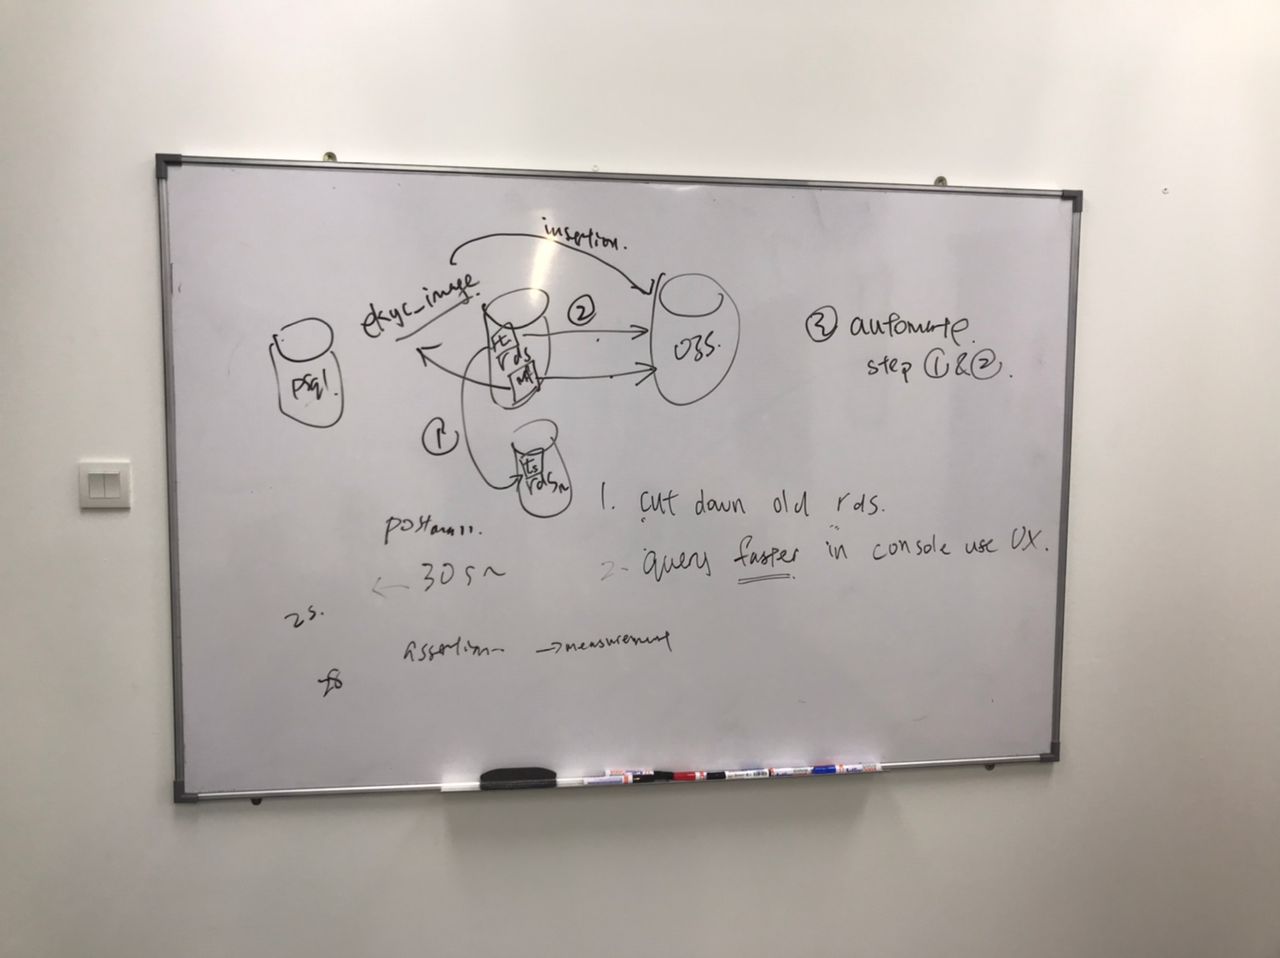 insertion.
ekyc_image
②
rds
psql
OBS.
③ automate
step ①&②.
①
ts
rds
1. cut down old rds.
2. query faster in console use UX.
30s~
2s.
assertion → measurement